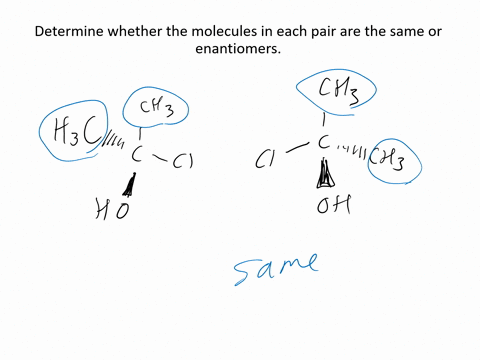 Determine whether the molecules in each pair are the same or
enantiomers.
CH3
H3C
C
Cl
HO
CH3
C
Cl
CH3
OH
same